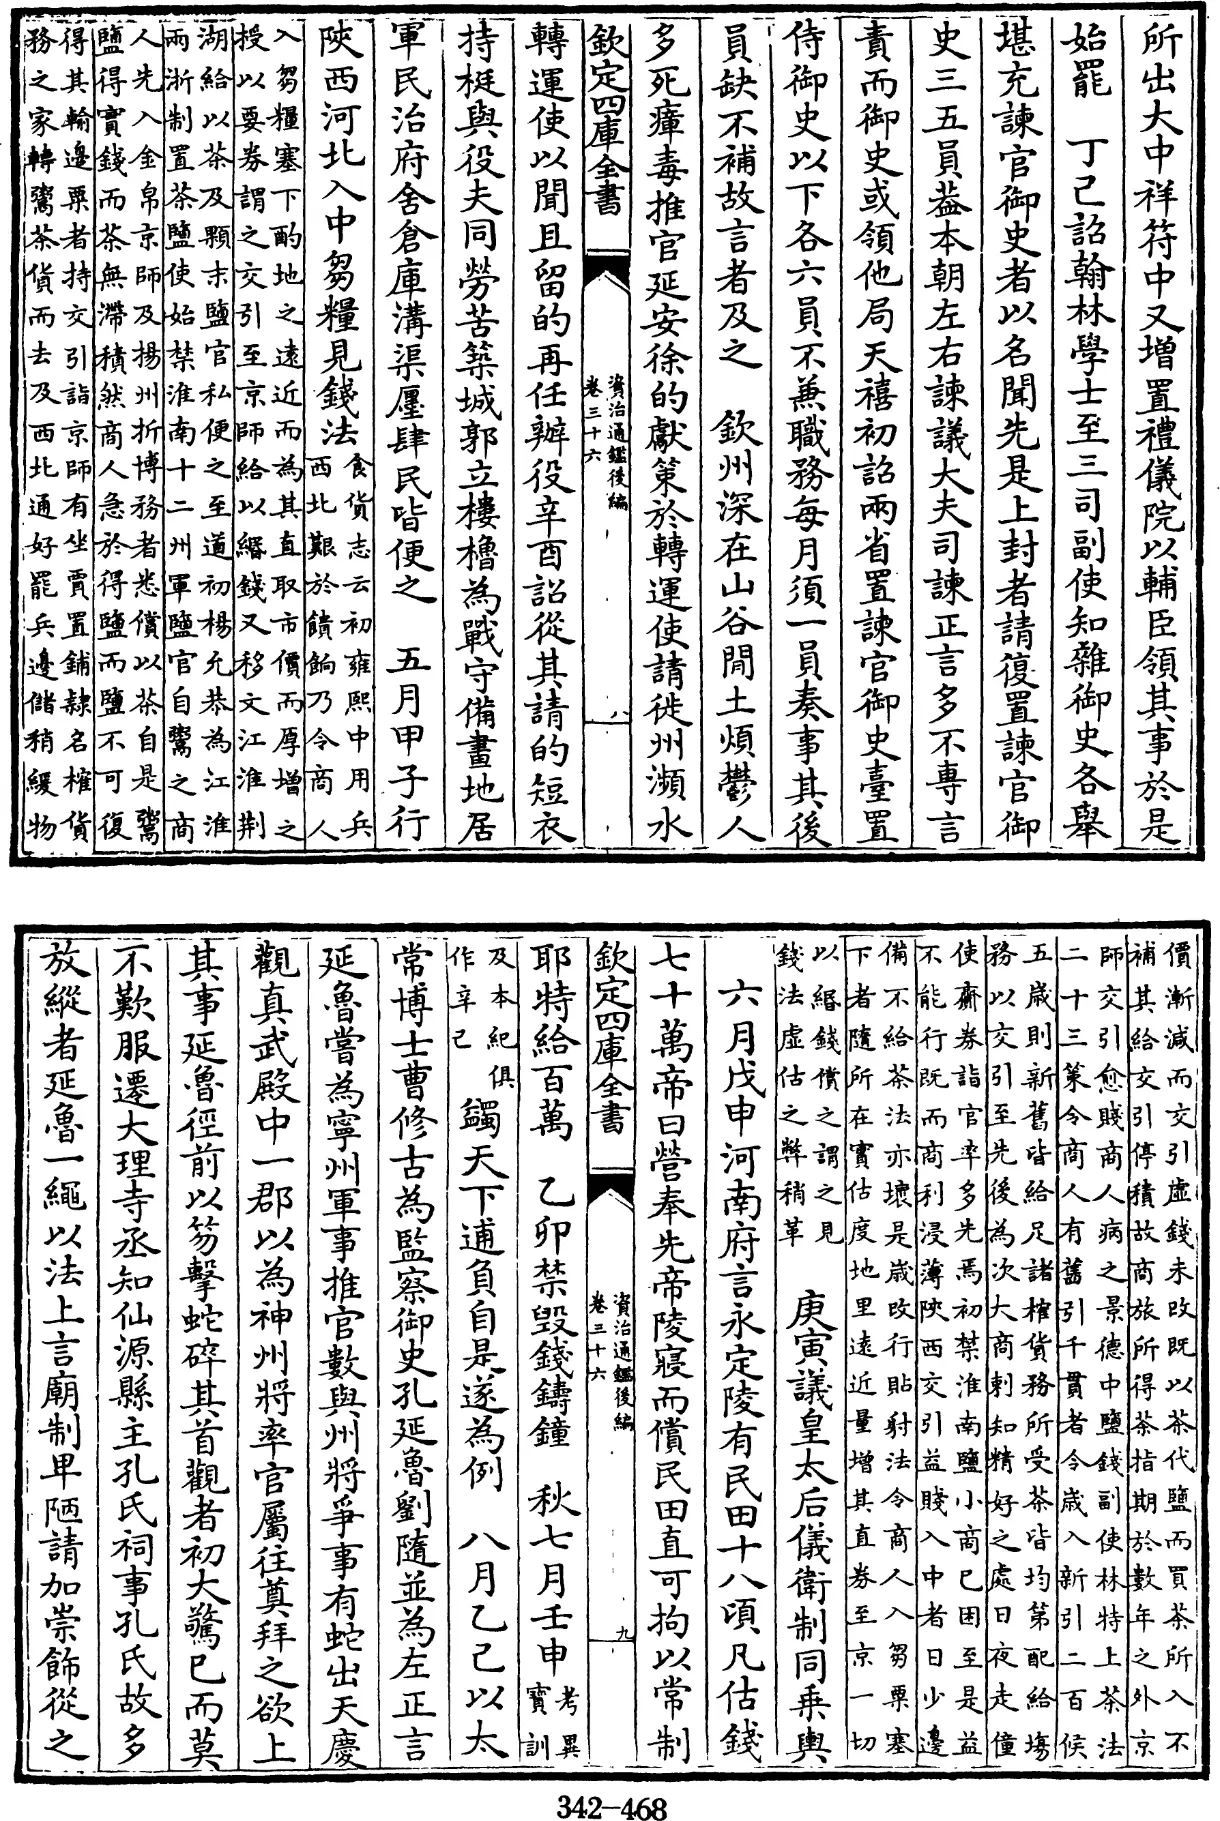 所出大中祥符中又增置禮儀院以輔臣領其事於是
始罷　丁己詔翰林學士至三司副使知雜御史各舉
堪充諫官御史者以名聞先是上封者請復置諫官御
史三五員葢本朝左右諫議大夫司諫正言多不專言
責而御史或領他局天禧初詔兩省置諫官御史臺置
侍御史以下各六員不兼職務每月須一員奏事其後
員缺不補故言者及之　欽州深在山谷閒土煩鬱人
多死瘴毒推官延安徐的獻策於轉運使請徙州瀕水
欽定四庫全書
資治通鑑後編
卷三十六
八
轉運使以聞且留的再任辦役辛酉詔從其請的短衣
持梃與役夫同勞苦築城郭立樓櫓為戰守備畫地居
軍民治府舍倉庫溝渠廛肆民皆便之　五月甲子行
陜西河北入中芻糧見錢法
食貨志云初雍熙中用兵
西北艱於饋餉乃令商人
入芻糧塞下酌地之遠近而為其直取市價而厚增之
授以要券謂之交引至京師給以緡錢又移文江淮荆
湖給以茶及顆末鹽官私便之至道初楊允恭為江淮
兩浙制置茶鹽使始禁淮南十二州軍鹽官自鬻之商
人先入金帛京師及揚州折博務者悉償以茶自是鬻
鹽得實錢而茶無滯積然商人急於得鹽而鹽不可復
得其輸邊粟者持交引詣京師有坐賈置鋪隷名榷貨
務之家轉鬻茶貨而去及西北通好罷兵邊儲稍緩物
價漸減而交引虛錢未改既以茶代鹽而買茶所入不
補其給交引停積故商旅所得茶指期於數年之外京
師交引愈賤商人病之景德中鹽錢副使林特上茶法
二十三策令商人有舊引千貫者令歲入新引二百候
五歲則新舊皆給足諸榷貨務所受茶皆均第配給塲
務以交引至先後為次大商刺知精好之處日夜走僮
使齎券詣官率多先焉初禁淮南鹽小商已困至是益
不能行既而商利浸薄陜西交引益賤入中者日少邊
備不給茶法亦壞是歲改行貼射法令商人入芻粟塞
下者隨所在實估度地里遠近量增其直券至京一切
以緡錢償之謂之見
錢法虛估之弊稍革
庚寅議皇太后儀衛制同乗輿
六月戊申河南府言永定陵有民田十八頃凡估錢
七十萬帝曰營奉先帝陵寢而償民田直可拘以常制
欽定四庫全書
資治通鑑後編
卷三十六
九
耶特給百萬　乙卯禁毀錢鑄鐘　秋七月壬申
考異
寳訓
及本紀俱
作辛己
蠲天下逋負自是遂為例　八月乙己以太
常博士曹修古為監察御史孔延魯劉隨並為左正言
延魯嘗為寧州軍事推官數與州將爭事有蛇出天慶
觀真武殿中一郡以為神州將率官屬往奠拜之欲上
其事延魯徑前以笏擊蛇碎其首觀者初大驚已而莫
不歎服遷大理寺丞知仙源縣主孔氏祠事孔氏故多
放縱者延魯一繩以法上言廟制卑陋請加崇飾從之
342-468